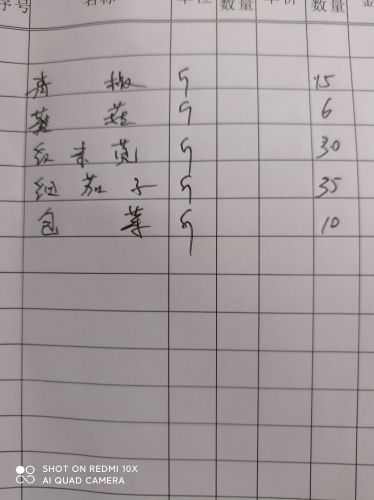 序号 名称 单位 数量 单价 数量 金
青椒 斤 15
蘑菇 斤 6
红米苋 斤 30
细茄子 斤 35
包菜 斤 10
SHOT ON REDMI 10X
AI QUAD CAMERA